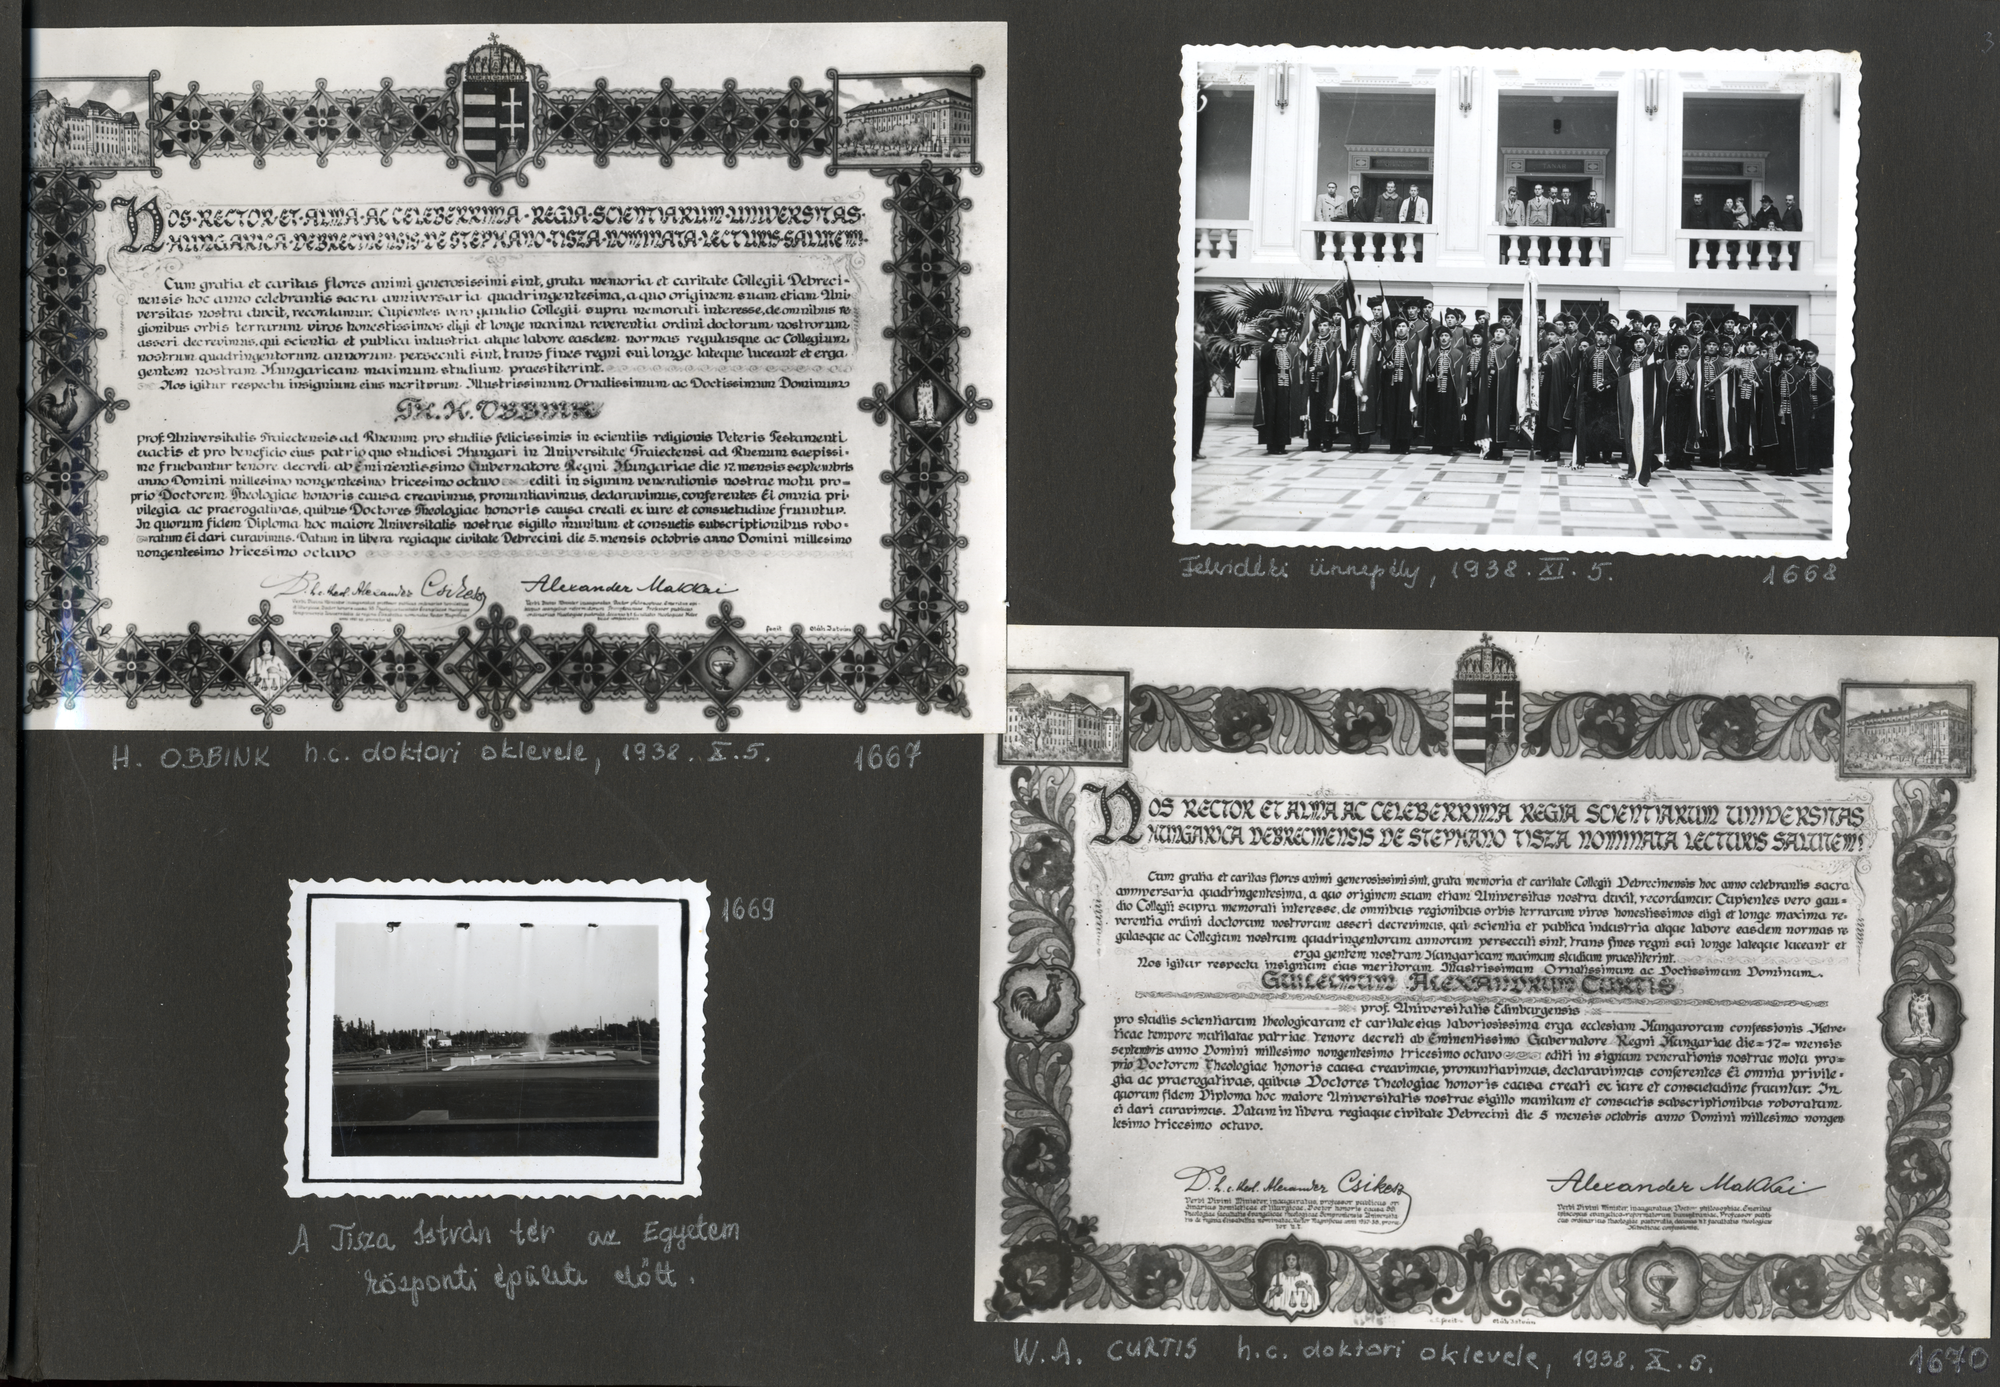 NOS·RECTOR·ET·ALMA·AC CELEBERRIMA·REGIA·SCIENTIARUM·UNIVERSITAS·
HUNGARICA·DEBRECINENSIS·DE STEPHANO·TISZA·NOMINATA·LECTURIS·SALUTEM·
Cum gratia et caritas flores animi generosissimi sint, grata memoria et caritate Collegii Debreci-
nensis hoc anno celebrantis sacra anniversaria quadringentesima, a quo originem suam etiam Uni-
versitas nostra duxit, recordamur. Cupientes vero gaudio Collegii supra memorati interesse, de omnibus re
gionibus orbis terrarum viros honestissimos eligi et longe maxima reverentia ordini doctorum nostrorum
asseri decrevimus, qui scientia et publica industria atque labore easdem normas regulasque ac Collegium
nostrum quadringentorum annorum persecuti sint, trans fines regni sui longe lateque luceant et erga
gentem nostram Hungaricam maximum studium praestiterint.
Nos igitur respectu insignium eius meritorum Illustrissimum Ornatissimum ac Doctissimum Dominum
TH. H. OBBINK
prof. Universitatis Traiectensis ad Rhenum pro studiis felicissimis in scientiis religionis Veteris Testamenti
exactis et pro beneficio eius patrio quo studiosi Hungari in Universitate Traiectensi ad Rhenum saepissi-
me fruebantur tenore decreti ab Eminentissimo Gubernatore Regni Hungariae die 17 mensis septembris
anno Domini millesimo nongentesimo tricesimo octavo editi in signum venerationis nostrae motu pro=
prio Doctorem Theologiae honoris causa creavimus, pronuntiavimus, declaravimus, conferentes Ei omnia pri-
vilegia ac praerogativas, quibus Doctores Theologiae honoris causa creati ex iure et consuetudine fruuntur.
In quorum fidem Diploma hoc maiore Universitatis nostrae sigillo munitum et consuetis subscriptionibus robo-
ratum Ei dari curavimus. Datum in libera regiaque civitate Debrecini die 5. mensis octobris anno Domini millesimo
nongentesimo tricesimo octavo
D. h. c. theol. Alexander Csikesz Alexander Makkai
fecit Oláh István
H. OBBINK h.c. doktori oklevele, 1938. X. 5. 1667
TANÁR
Felvidéki ünnepély, 1938. XI. 5. 1668
1669
A Tisza István tér az Egyetem
központi épülete előtt.
NOS RECTOR ET ALMA AC CELEBERRIMA REGIA SCIENTIARUM UNIVERSITAS
HUNGARICA DEBRECINENSIS DE STEPHANO TISZA NOMINATA LECTURIS SALUTEM!
Cum gratia et caritas flores animi generosissimi sint, grata memoria et caritate Collegii Debrecinensis hoc anno celebrantis sacra
anniversaria quadringentesima, a quo originem suam etiam Universitas nostra duxit, recordamur. Cupientes vero gau=
dio Collegii supra memorati interesse, de omnibus regionibus orbis terrarum viros honestissimos eligi et longe maxima re-
verentia ordini doctorum nostrorum asseri decrevimus, qui scientia et publica industria atque labore easdem normas re
gulasque ac Collegium nostrum quadringentorum annorum persecuti sint, trans fines regni sui longe lateque luceant et
erga gentem nostram Hungaricam maximum studium praestiterint.
Nos igitur respectu insignium eius meritorum Illustrissimum Ornatissimum ac Doctissimum Dominum
GUILELMUM ALEXANDRUM CURTIS
prof. Universitatis Edinburgensis
pro studiis scientiarum theologicarum et caritate eius laboriosissima erga ecclesiam Hungarorum confessionis Helve-
ticae tempore mutilatae patriae tenore decreti ab Eminentissimo Gubernatore Regni Hungariae die=17= mensis
septembris anno Domini millesimo nongentesimo tricesimo octavo editi in signum venerationis nostrae motu pro=
prio Doctorem Theologiae honoris causa creavimus, pronuntiavimus, declaravimus conferentes Ei omnia privile-
gia ac praerogativas, quibus Doctores Theologiae honoris causa creati ex iure et consuetudine fruuntur. In
quorum fidem Diploma hoc maiore Universitatis nostrae sigillo munitum et consuetis subscriptionibus roboratum
ei dari curavimus. Datum in libera regiaque civitate Debrecini die 5 mensis octobris anno Domini millesimo nongen
tesimo tricesimo octavo.
D. h. c. theol. Alexander Csikesz Alexander Makkai
fecit Oláh István
W. A. CURTIS h.c. doktori oklevele, 1938. X. 5. 1670